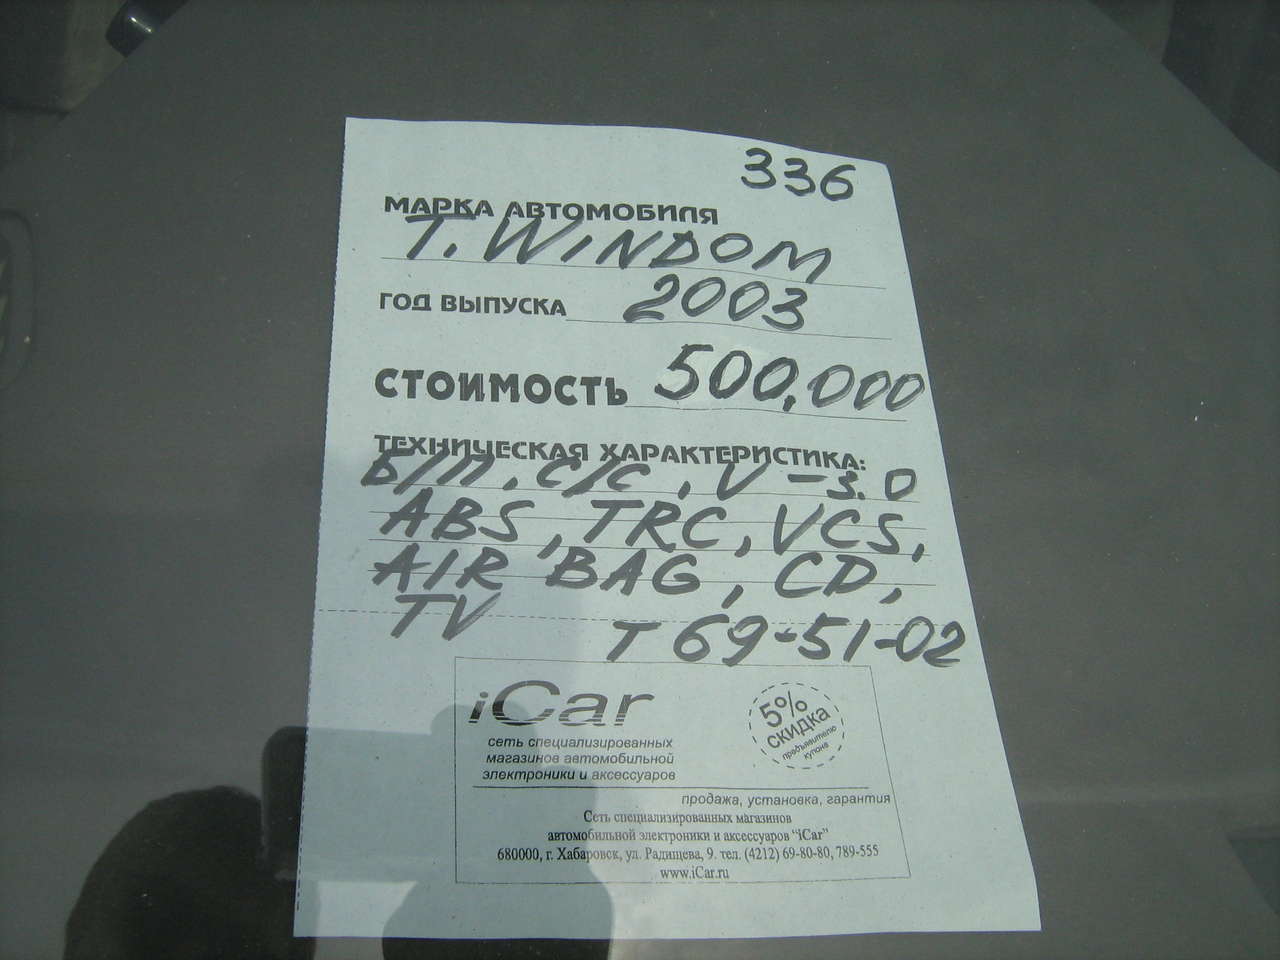 336
МАРКА АВТОМОБИЛЯ
T. WINDOM
ГОД ВЫПУСКА 2003
СТОИМОСТЬ 500,000
ТЕХНИЧЕСКАЯ ХАРАКТЕРИСТИКА:
Б/П, С/С, V-3.0
ABS, TRC, VCS,
AIR BAG, CD,
TV Т 69-51-02
iCar
5% СКИДКА
предъявителю
купона
сеть специализированных
магазинов автомобильной
электроники и аксессуаров
продажа, установка, гарантия
Сеть специализированных магазинов
автомобильной электроники и аксессуаров "iCar"
680000, г. Хабаровск, ул. Радищева, 9. тел. (4212) 69-80-80, 789-555
www.iCar.ru